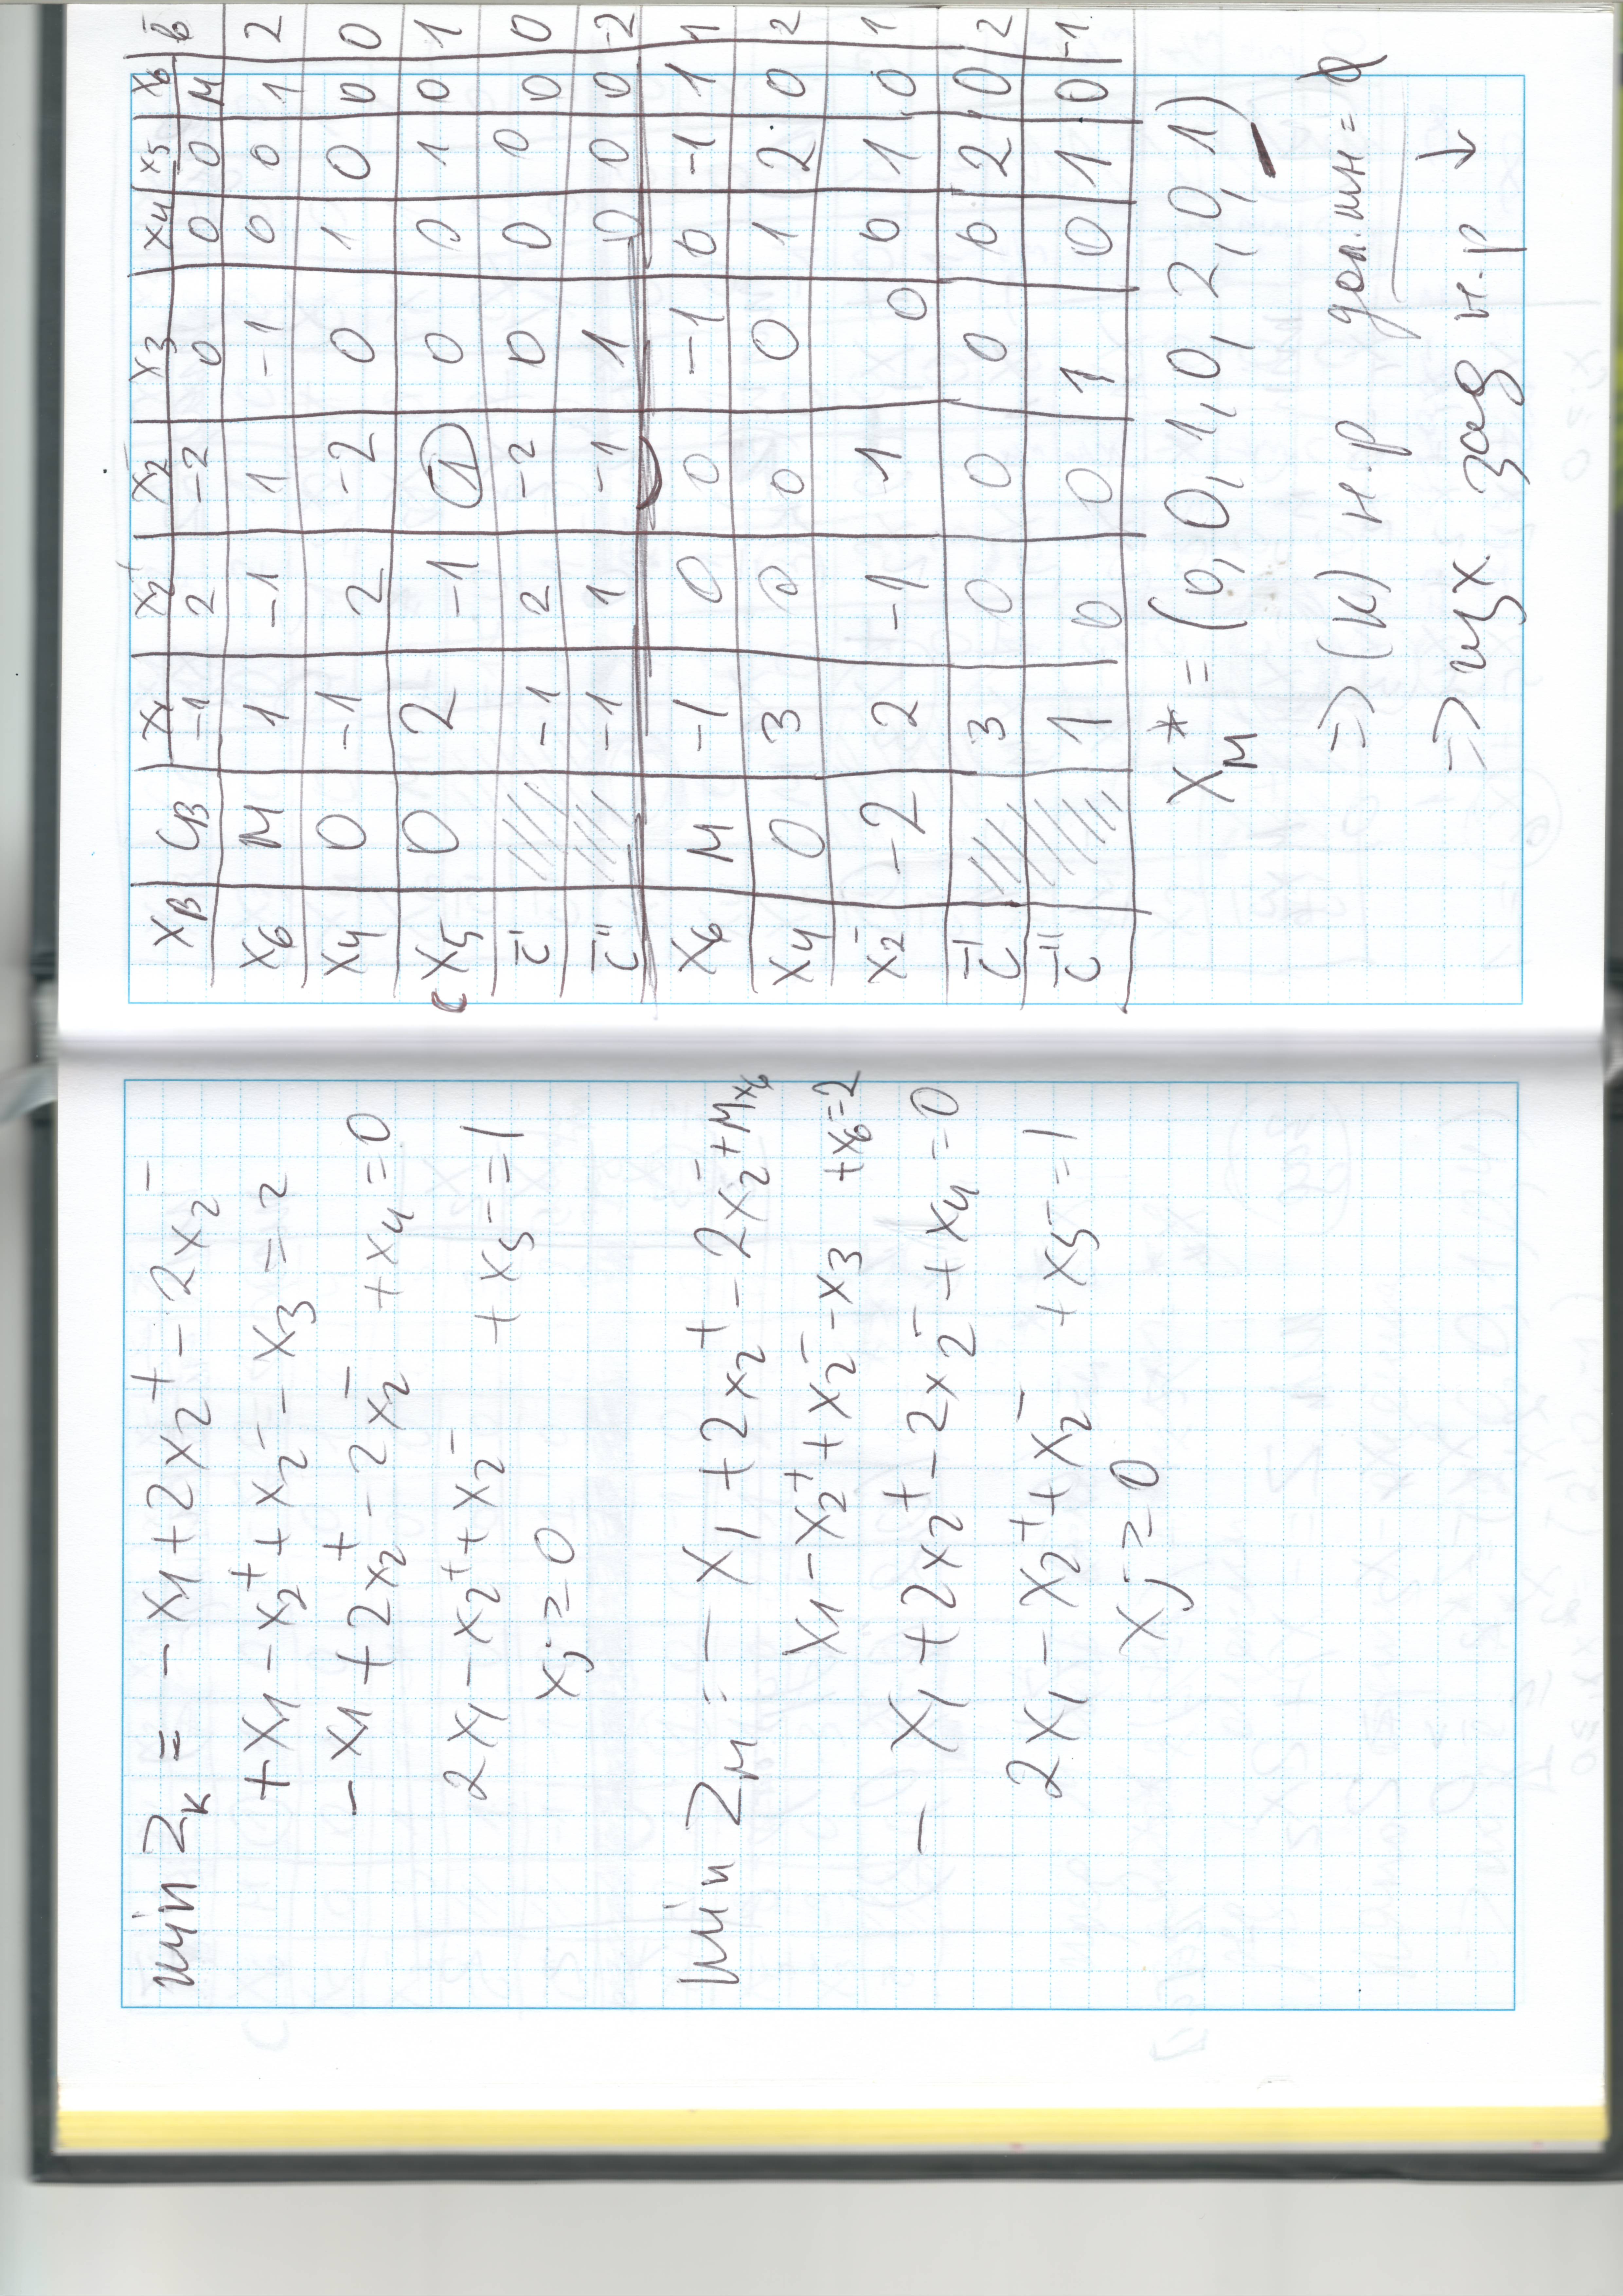 min Zк = -x1 + 2x2⁺ - 2x2⁻
+x1 - x2⁺ + x2⁻ - x3 = 2
-x1 + 2x2⁺ - 2x2⁻ + x4 = 0
2x1 - x2⁺ + x2⁻ + x5 = 1
xj ≥ 0
min ZM = -x1 + 2x2⁺ - 2x2⁻ + Mx6
x1 - x2⁺ + x2⁻ - x3 + x6 = 2
-x1 + 2x2⁺ - 2x2⁻ + x4 = 0
2x1 - x2⁺ + x2⁻ + x5 = 1
xj ≥ 0
xB CB x1 x2⁺ x2⁻ x3 x4 x5 x6 b̄
-1 2 -2 0 0 0 M
x6 M 1 -1 1 -1 0 0 1 2
x4 0 -1 2 -2 0 1 0 0 0
x5 0 2 -1 1 0 0 1 0 1
c̄' -1 2 -2 0 0 0 0 0
c̄'' -1 1 -1 1 0 0 0 -2
x6 M -1 0 0 -1 0 -1 1 1
x4 0 3 0 0 0 1 2 0 2
x2⁻ -2 2 -1 1 0 0 1 0 1
c̄' 3 0 0 0 0 2 0 2
c̄'' 1 0 0 1 0 1 0 -1
xM* = (0, 0, 1, 0, 2, 0, 1)
⇒ (к) н.р доп. мн =
⇒ исх зад н.р ↓